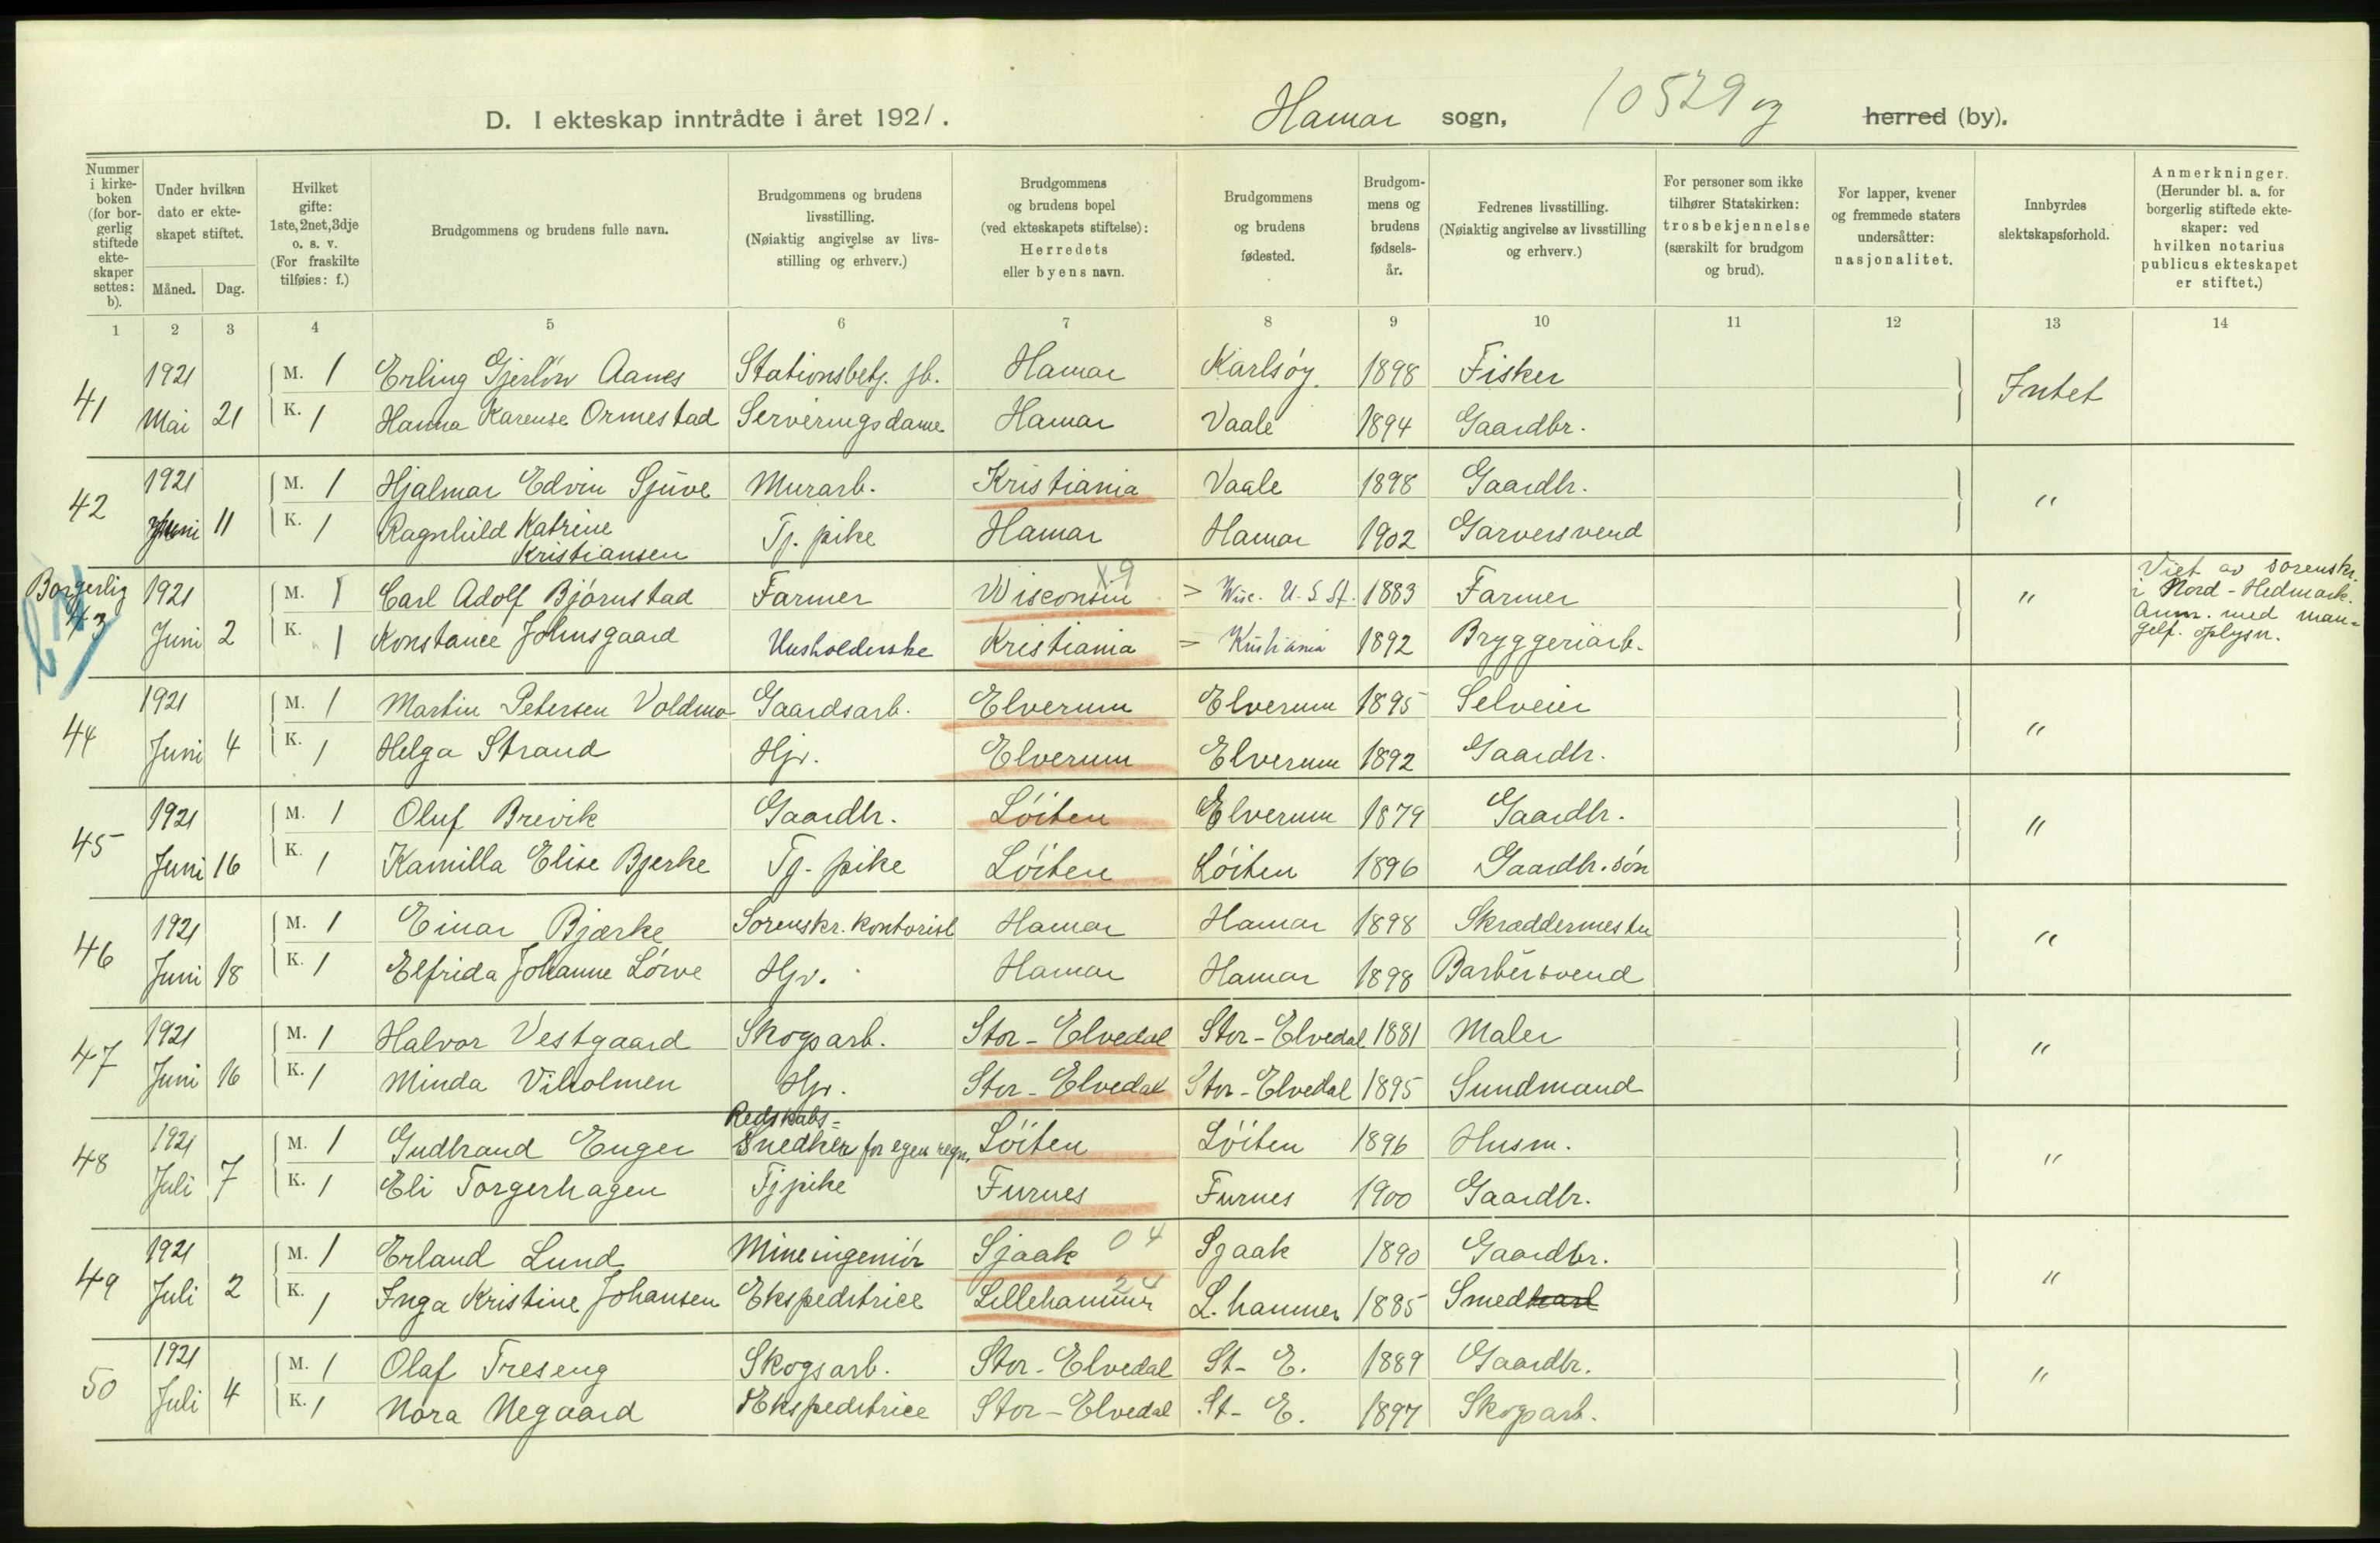 D. I ekteskap inntrådte i året 1921. Hamar sogn, 10529 og herred (by).
Nummer i kirkeboken (for borgerlig stiftede ekteskaper settes: b).
Under hvilken dato er ekteskapet stiftet.
Måned. Dag.
Hvilket gifte: 1ste, 2net, 3dje o. s. v. (For fraskilte tilføies: f.)
Brudgommens og brudens fulle navn.
Brudgommens og brudens livsstilling. (Nøiaktig angivelse av livsstilling og erhverv.)
Brudgommens og brudens bopel (ved ekteskapets stiftelse): Herredets eller byens navn.
Brudgommens og brudens fødested.
Brudgommens og brudens fødselsår.
Fedrenes livsstilling. (Nøiaktig angivelse av livsstilling og erhverv.)
For personer som ikke tilhører Statskirken: trosbekjennelse (særskilt for brudgom og brud).
For lapper, kvener og fremmede staters undersåtter: nasjonalitet.
Innbyrdes slektskapsforhold.
Anmerkninger. (Herunder bl. a. for borgerlig stiftede ekteskaper: ved hvilken notarius publicus ekteskapet er stiftet.)
1 2 3 4 5 6 7 8 9 10 11 12 13 14
41 1921 M. 1 Erling Gjerløv Aanes Stationsbetj. jb. Hamar Karlsöy 1898 Fisker Intet
Mai 21 K. 1 Hanna Karense Ormestad Serveringsdame Hamar Vaale 1894 Gaardbr.
42 1921 M. 1 Hjalmar Edvin Sjuve Murarb. Kristiania Vaale 1898 Gaardbr. "
Juni 11 K. 1 Ragnhild Katrine Kristiansen Tj. pike Hamar Hamar 1902 Garversvend
Borgerlig 43 1921 M. 1 Carl Adolf Bjørnstad Farmer Wisconsin > Wisc. U.S.St. 1883 Farmer " Viet av sorenskr. i Nord-Hedmark.
Juni 2 K. 1 Konstance Johnsgaard Husholderske Kristiania = Kristiania 1892 Bryggeriarb. Anm. med mangelf. oplysn.
44 1921 M. 1 Martin Petersen Voldmo Gaardsarb. Elverum Elverum 1895 Selveier "
Juni 4 K. 1 Helga Strand Hjv. Elverum Elverum 1892 Gaardbr.
45 1921 M. 1 Oluf Brevik Gaardbr. Löiten Elverum 1879 Gaardbr. "
Juni 16 K. 1 Kamilla Elise Bjerke Tj. pike Löiten Löiten 1896 Gaardbr. søn
46 1921 M. 1 Einar Bjærke Sorenskr. kontorist Hamar Hamar 1898 Skræddermester "
Juni 18 K. 1 Elfrida Johanne Lörve Hjv. Hamar Hamar 1898 Barbersvend
47 1921 M. 1 Halvor Vestgaard Skogsarb. Stor-Elvedal Stor-Elvedal 1881 Maler "
Juni 16 K. 1 Minda Viholmen Hjv. Stor-Elvedal Stor-Elvedal 1895 Sundmand
48 1921 M. 1 Gudbrand Enger Redskabs-Snedker for egen regn. Löiten Löiten 1896 Husm. "
Juli 7 K. 1 Eli Torgerhagen Tjpike Furnes Furnes 1900 Gaardbr.
49 1921 M. 1 Erland Lund Mineingeniör Sjaak 04 Sjaak 1890 Gaardbr. "
Juli 2 K. 1 Inga Kristine Johansen Ekspeditrice Lillehammer 24 L.hammer 1885 Smedkarl
50 1921 M. 1 Olaf Treseng Skogsarb. Stor-Elvedal St-E. 1889 Gaardbr. "
Juli 4 K. 1 Nora Negaard Ekspeditrice Stor-Elvedal St-E. 1897 Skogsarb.